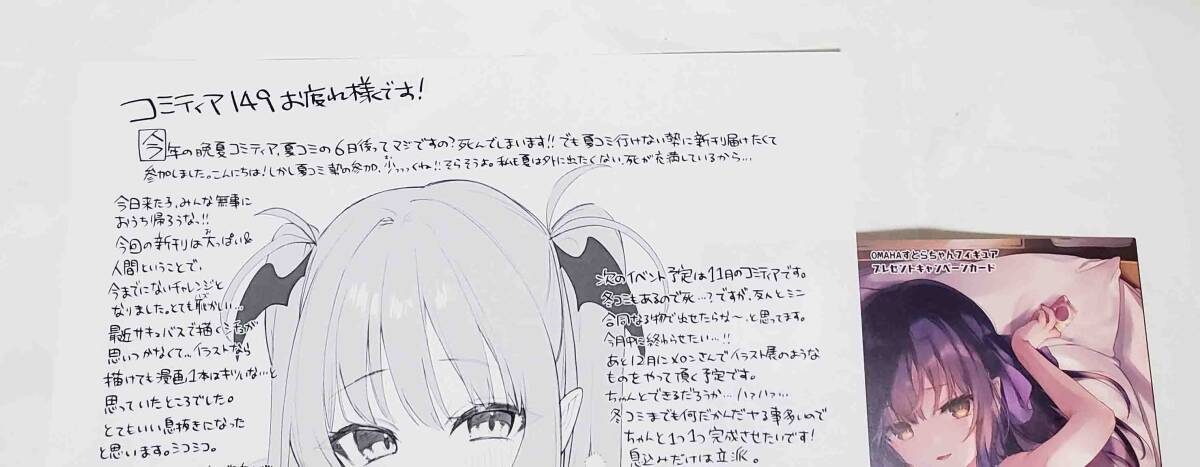 コミティア149お疲れ様です!
今年の晩夏コミティア、夏コミの6日後ってマジですの?死んでしまいます!!でも夏コミ行けない勢に新刊届けたくて
参加しました。こんにちは!しかし夏コミ勢の参加、少っっっくね!!そらそうよ。私も夏は外に出たくない、死が充満しているから…
今日来た子、みんな無事に
おうち帰ろうなっ!!
今回の新刊は大っぱい&
人間ということで、
今までにないチャレンジと
なりました。とても恥かしい…
最近サキュバスで描く
思いつかなくて…イラストなら
描けても漫画1本はキツいな…と
思っていたところでした。
とてもいい息抜きになった
と思います。シコシコ。
次のイベント予定は11月のコミティアです。
冬コミもあるので死…?ですが、友人とミニ
合同なる物で出せたらな~、と思ってます。
今月中に終わらせたい…!!
あと12月にメロンさんでイラスト展のような
ものをやって頂く予定です。
ちゃんとできるだろうか…ハァハァ…
冬コミまでも何だかんだヤる事多いので
ちゃんと1つ1つ完成させたいです!
意込みだけは立派。
OMAHAすどらちゃんフィギュア
プレゼントキャンペーンカード